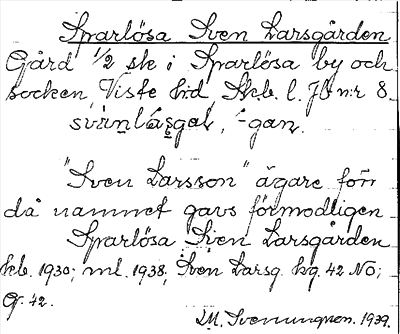 Sparlösa Sven Larsgården
Gård 1/2 sk i Sparlösa by och
socken, Viste hd, Skb. l. Jb nr 8.
svänlásgaɫ, -gan.
"Sven Larsson" ägare förr
då namnet gavs förmodligen
Sparlösa Sven Larsgården
kb. 1930; ml. 1938, Sven Larsg. hg. 42 NO;
Gr. 42.
1939.